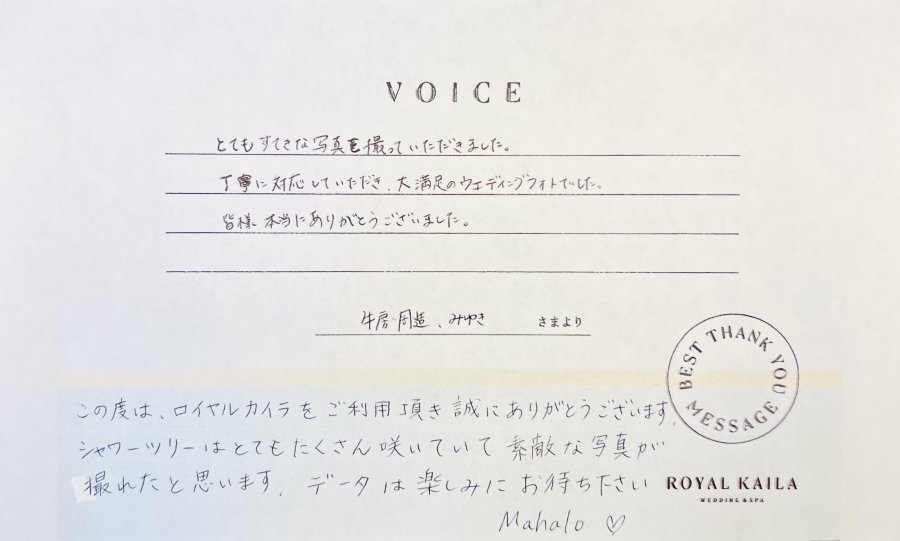 VOICE
とてもすてきな写真を撮っていただきました。
丁寧に対応していただき、大満足のウェディングフォトでした。
皆様、本当にありがとうございました。
牛房周造、みゆき さまより
BEST THANK YOU MESSAGE
この度は、ロイヤルカイラをご利用頂き誠にありがとうございます。
シャワーツリーはとてもたくさん咲いていて素敵な写真が
撮れたと思います。データは楽しみにお待ち下さい
ROYAL KAILA
WEDDING & SPA
Mahalo ♡